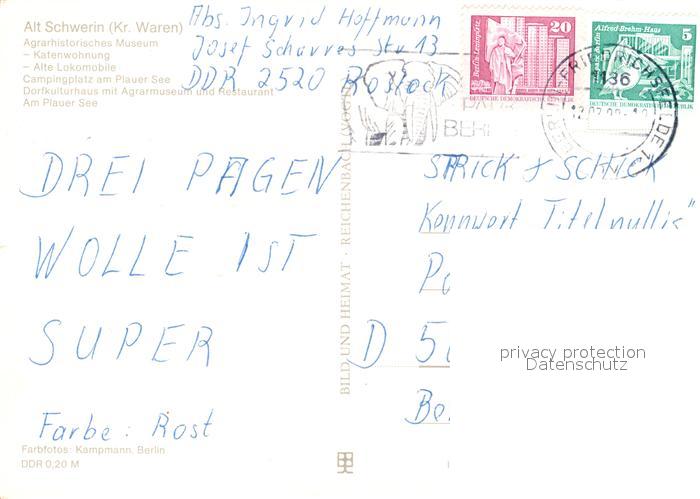 Alt Schwerin (Kr. Waren)
Agrarhistorisches Museum
– Katenwohnung
– Alte Lokomobile
Campingplatz am Plauer See
Dorfkulturhaus mit Agrarmuseum und Restaurant
Am Plauer See
Abs. Ingrid Hoffmann
Josef Schares Str 13
DDR 2520 Rostock
DREI PAGEN
WOLLE IST
SUPER
Farbe: Rost
Farbfotos: Kampmann, Berlin
DDR 0,20 M
BILD UND HEIMAT · REICHENBACH (VOGTL)
Berlin-Leninplatz
20
DEUTSCHE DEMOKRATISCHE REPUBLIK
Alfred-Brehm-Haus
5
DEUTSCHE DEMOKRATISCHE REPUBLIK
BERLIN-FRIEDRICHSFELDE 1
1136
STRICK & SCHICK
Kennwort Titelnullis"
D 5
Be
privacy protection
Datenschutz